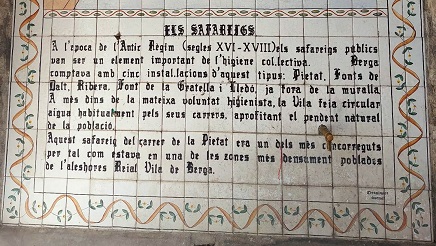 ELS SAFAREIGS
A l'època de l'Antic Règim (segles XVI-XVIII)els safareigs públics
van ser un element important de l'higiene col.lectiva. Berga
comptava amb cinc instal.lacions d'aquest tipus: Pietat, Fonts de
Dalt, Ribera, Font de la Gratella i Lledó, ja fora de la muralla.
A més dins de la mateixa voluntat higienista, la Vila feia circular
aigua habitualment pels seus carrers, aprofitant el pendent natural
de la població.
Aquest safareig del carrer de la Pietat era un dels més concorreguts
per tal com estava en una de les zones més densament poblades
de l'aleshores Reial Vila de Berga.